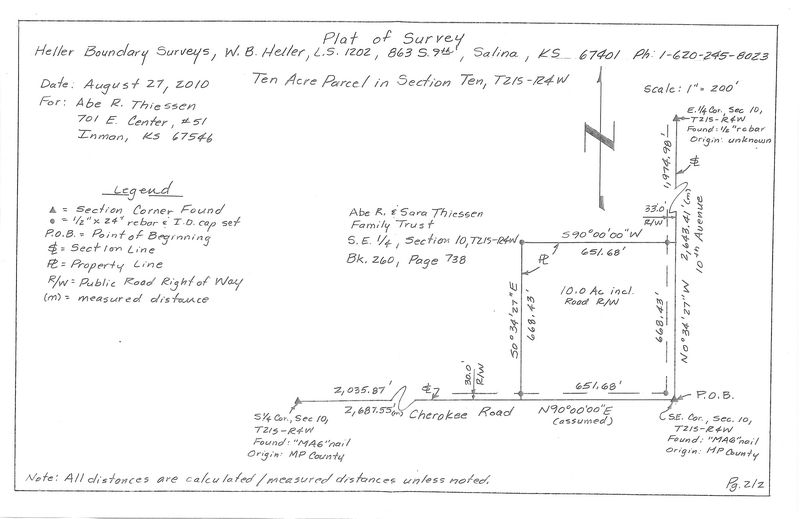 Plat of Survey
Heller Boundary Surveys, W. B. Heller, L.S. 1202, 863 S. 9th, Salina, KS 67401 Ph: 1-620-245-8023
Date: August 27, 2010
Ten Acre Parcel in Section Ten, T21S-R4W
Scale: 1" = 200'
For: Abe R. Thiessen
701 E. Center, #51
Inman, KS 67546
E. 1/4 Cor., Sec 10,
T21S-R4W
Found: 1/2" rebar
Origin: unknown
N
1,974.98'
Legend
▲ = Section Corner Found
● = 1/2" x 24" rebar & I.D. cap set
P.O.B. = Point of Beginning
℄ = Section Line
PL = Property Line
R/W = Public Road Right of Way
(m) = measured distance
Abe R. & Sara Thiessen
Family Trust
S.E. 1/4, Section 10, T21S-R4W
Bk. 260, Page 738
33.0'
R/W
S90°00'00"W
651.68'
PL
10.0 Ac incl.
Road R/W
S0°34'27"E
668.43'
668.43'
N0°34'27"W 2,643.41'(m)
10th Avenue
30.0'
R/W
2,035.87'
2,687.55'(m)
651.68'
P.O.B.
Cherokee Road
N90°00'00"E
(assumed)
S 1/4 Cor., Sec 10,
T21S-R4W
Found: "MAG" nail
Origin: MP County
SE. Cor., Sec. 10,
T21S-R4W
Found: "MAG" nail
Origin: MP County
Note: All distances are calculated / measured distances unless noted.
Pg. 2/2